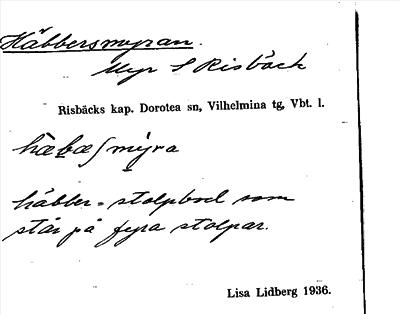 Häbbersmyran.
Myr S Risbäck
Risbäcks kap. Dorotea sn, Vilhelmina tg, Vbt. l.
hæbæʃmyra
häbber = stolpbod som
står på fyra stolpar.
Lisa Lidberg 1936.